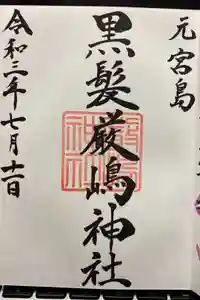 元宮島
黒髪厳嶋神社
令和三年七月十一日